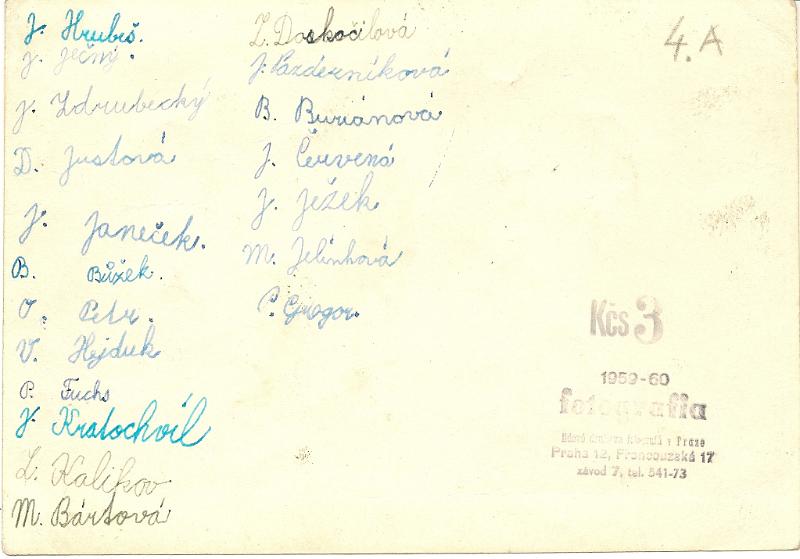 J. Hrubeš.
J. Ječný.
J. Zdrubecký
D. Justová
J. Janeček.
B. Bůžek.
O. Petr.
V. Hejduk
P. Fuchs
J. Kratochvíl
L. Kalikov
M. Bártová
Z. Doskočilová
J. Pazderníková
B. Buriánová
J. Červená
J. Ježek
M. Jelínková
P. Gregor.
4. A
Kčs 3
1959-60
fotografia
fotografů v Praze
Praha 12, Francouzská 17
závod 7, tel. 541-73